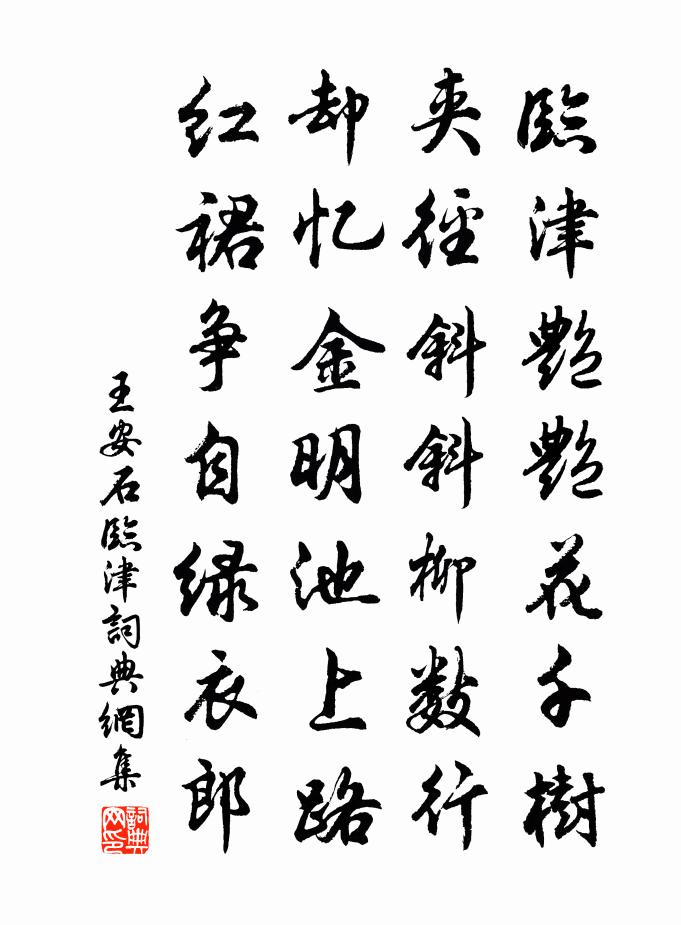 臨津艷艷花千樹
夾徑斜斜柳數行
却忆金明池上路
红裙争自绿衣郎
王安石臨津詞典網集
詞典网印